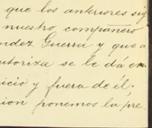 que los anteriores sig
nuestro compañero
ndez Guerra y que a
utoriza se le dá en
icio y fuera de él,
ion ponemos la pre